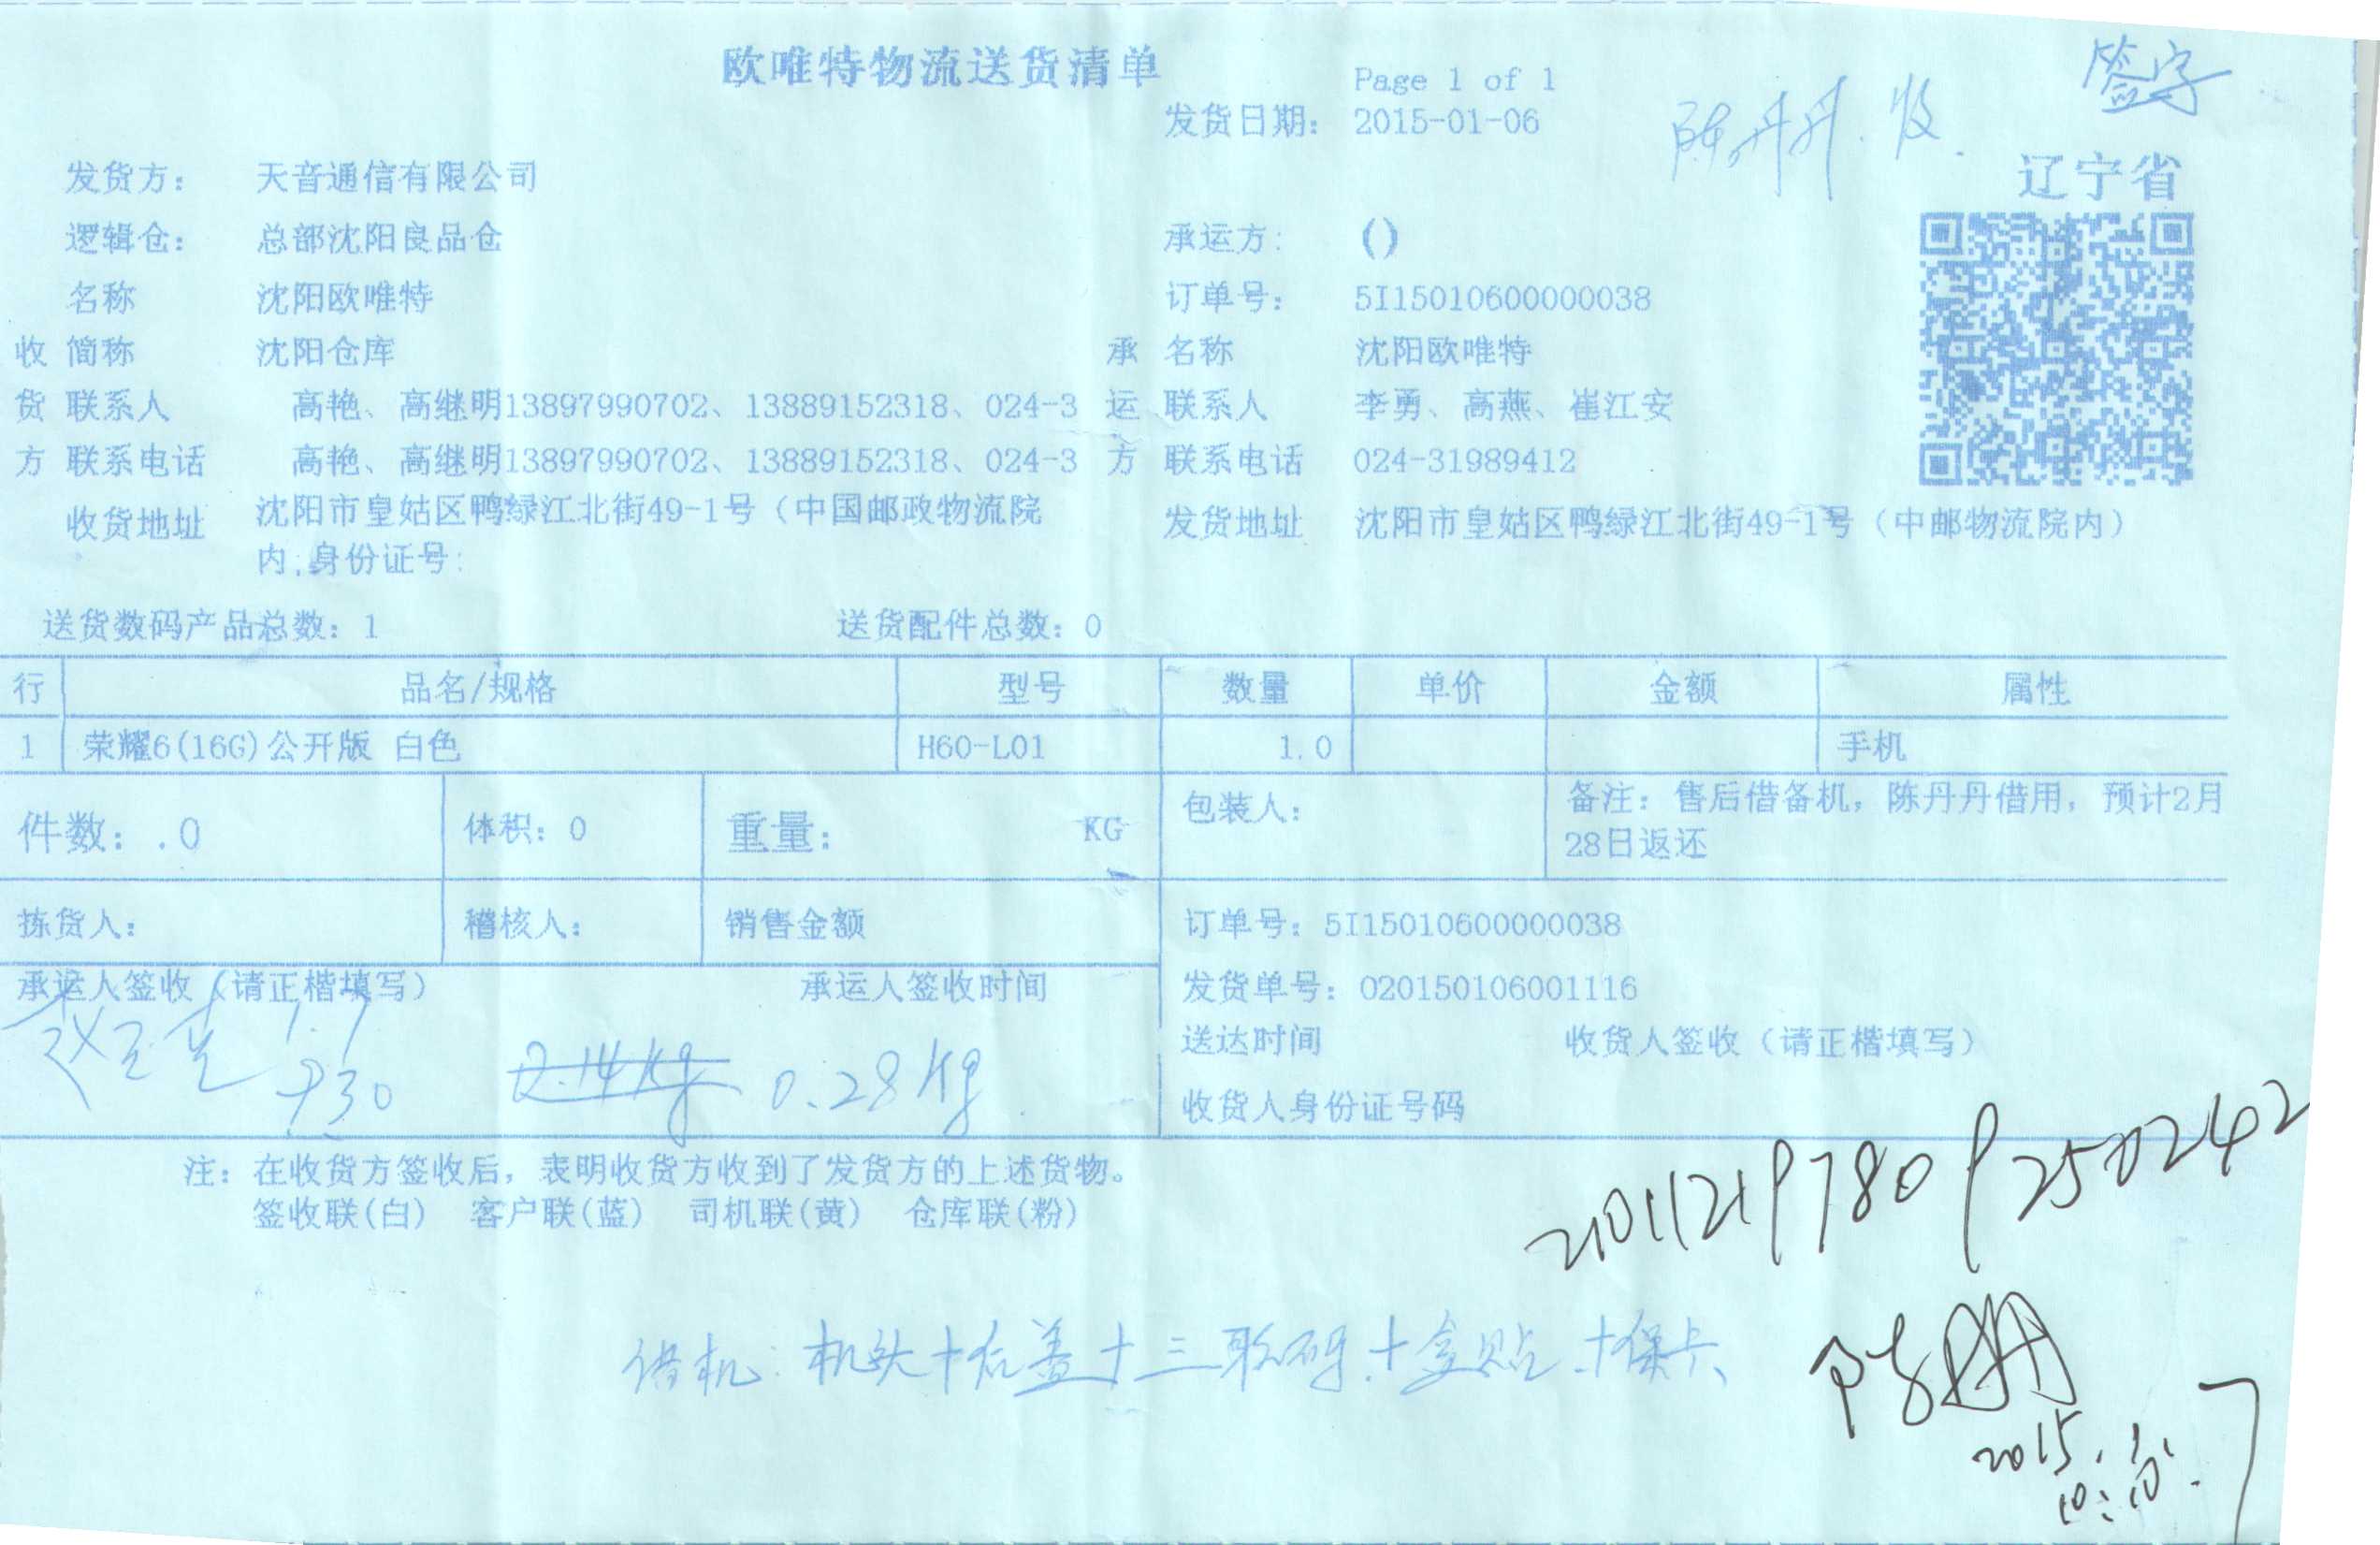 欧唯特物流送货清单
Page 1 of 1
签字
发货日期: 2015-01-06
陈丹丹.收
辽宁省
发货方: 天音通信有限公司
逻辑仓: 总部沈阳良品仓 承运方: ()
名称 沈阳欧唯特 订单号: 5I15010600000038
收 简称 沈阳仓库 承 名称 沈阳欧唯特
货 联系人 高艳、高继明13897990702、13889152318、024-3 运 联系人 李勇、高燕、崔江安
方 联系电话 高艳、高继明13897990702、13889152318、024-3 方 联系电话 024-31989412
收货地址 沈阳市皇姑区鸭绿江北街49-1号（中国邮政物流院 发货地址 沈阳市皇姑区鸭绿江北街49-1号（中邮物流院内）
内;身份证号:
送货数码产品总数: 1 送货配件总数: 0
行 品名/规格 型号 数量 单价 金额 属性
1 荣耀6(16G)公开版 白色 H60-L01 1.0 手机
件数: .0 体积: 0 重量: KG 包装人: 备注: 售后借备机，陈丹丹借用，预计2月
28日返还
拣货人: 稽核人: 销售金额 订单号: 5I15010600000038
承运人签收（请正楷填写） 承运人签收时间 发货单号: 020150106001116
1.7
930 2.14kg 0.28kg
送达时间 收货人签收（请正楷填写）
收货人身份证号码
210112197809250242
注: 在收货方签收后，表明收货方收到了发货方的上述货物。
签收联(白) 客户联(蓝) 司机联(黄) 仓库联(粉)
借机: 机头+后盖+三联码+盒贴+保卡
陈丹丹
2015.1.7
10:10